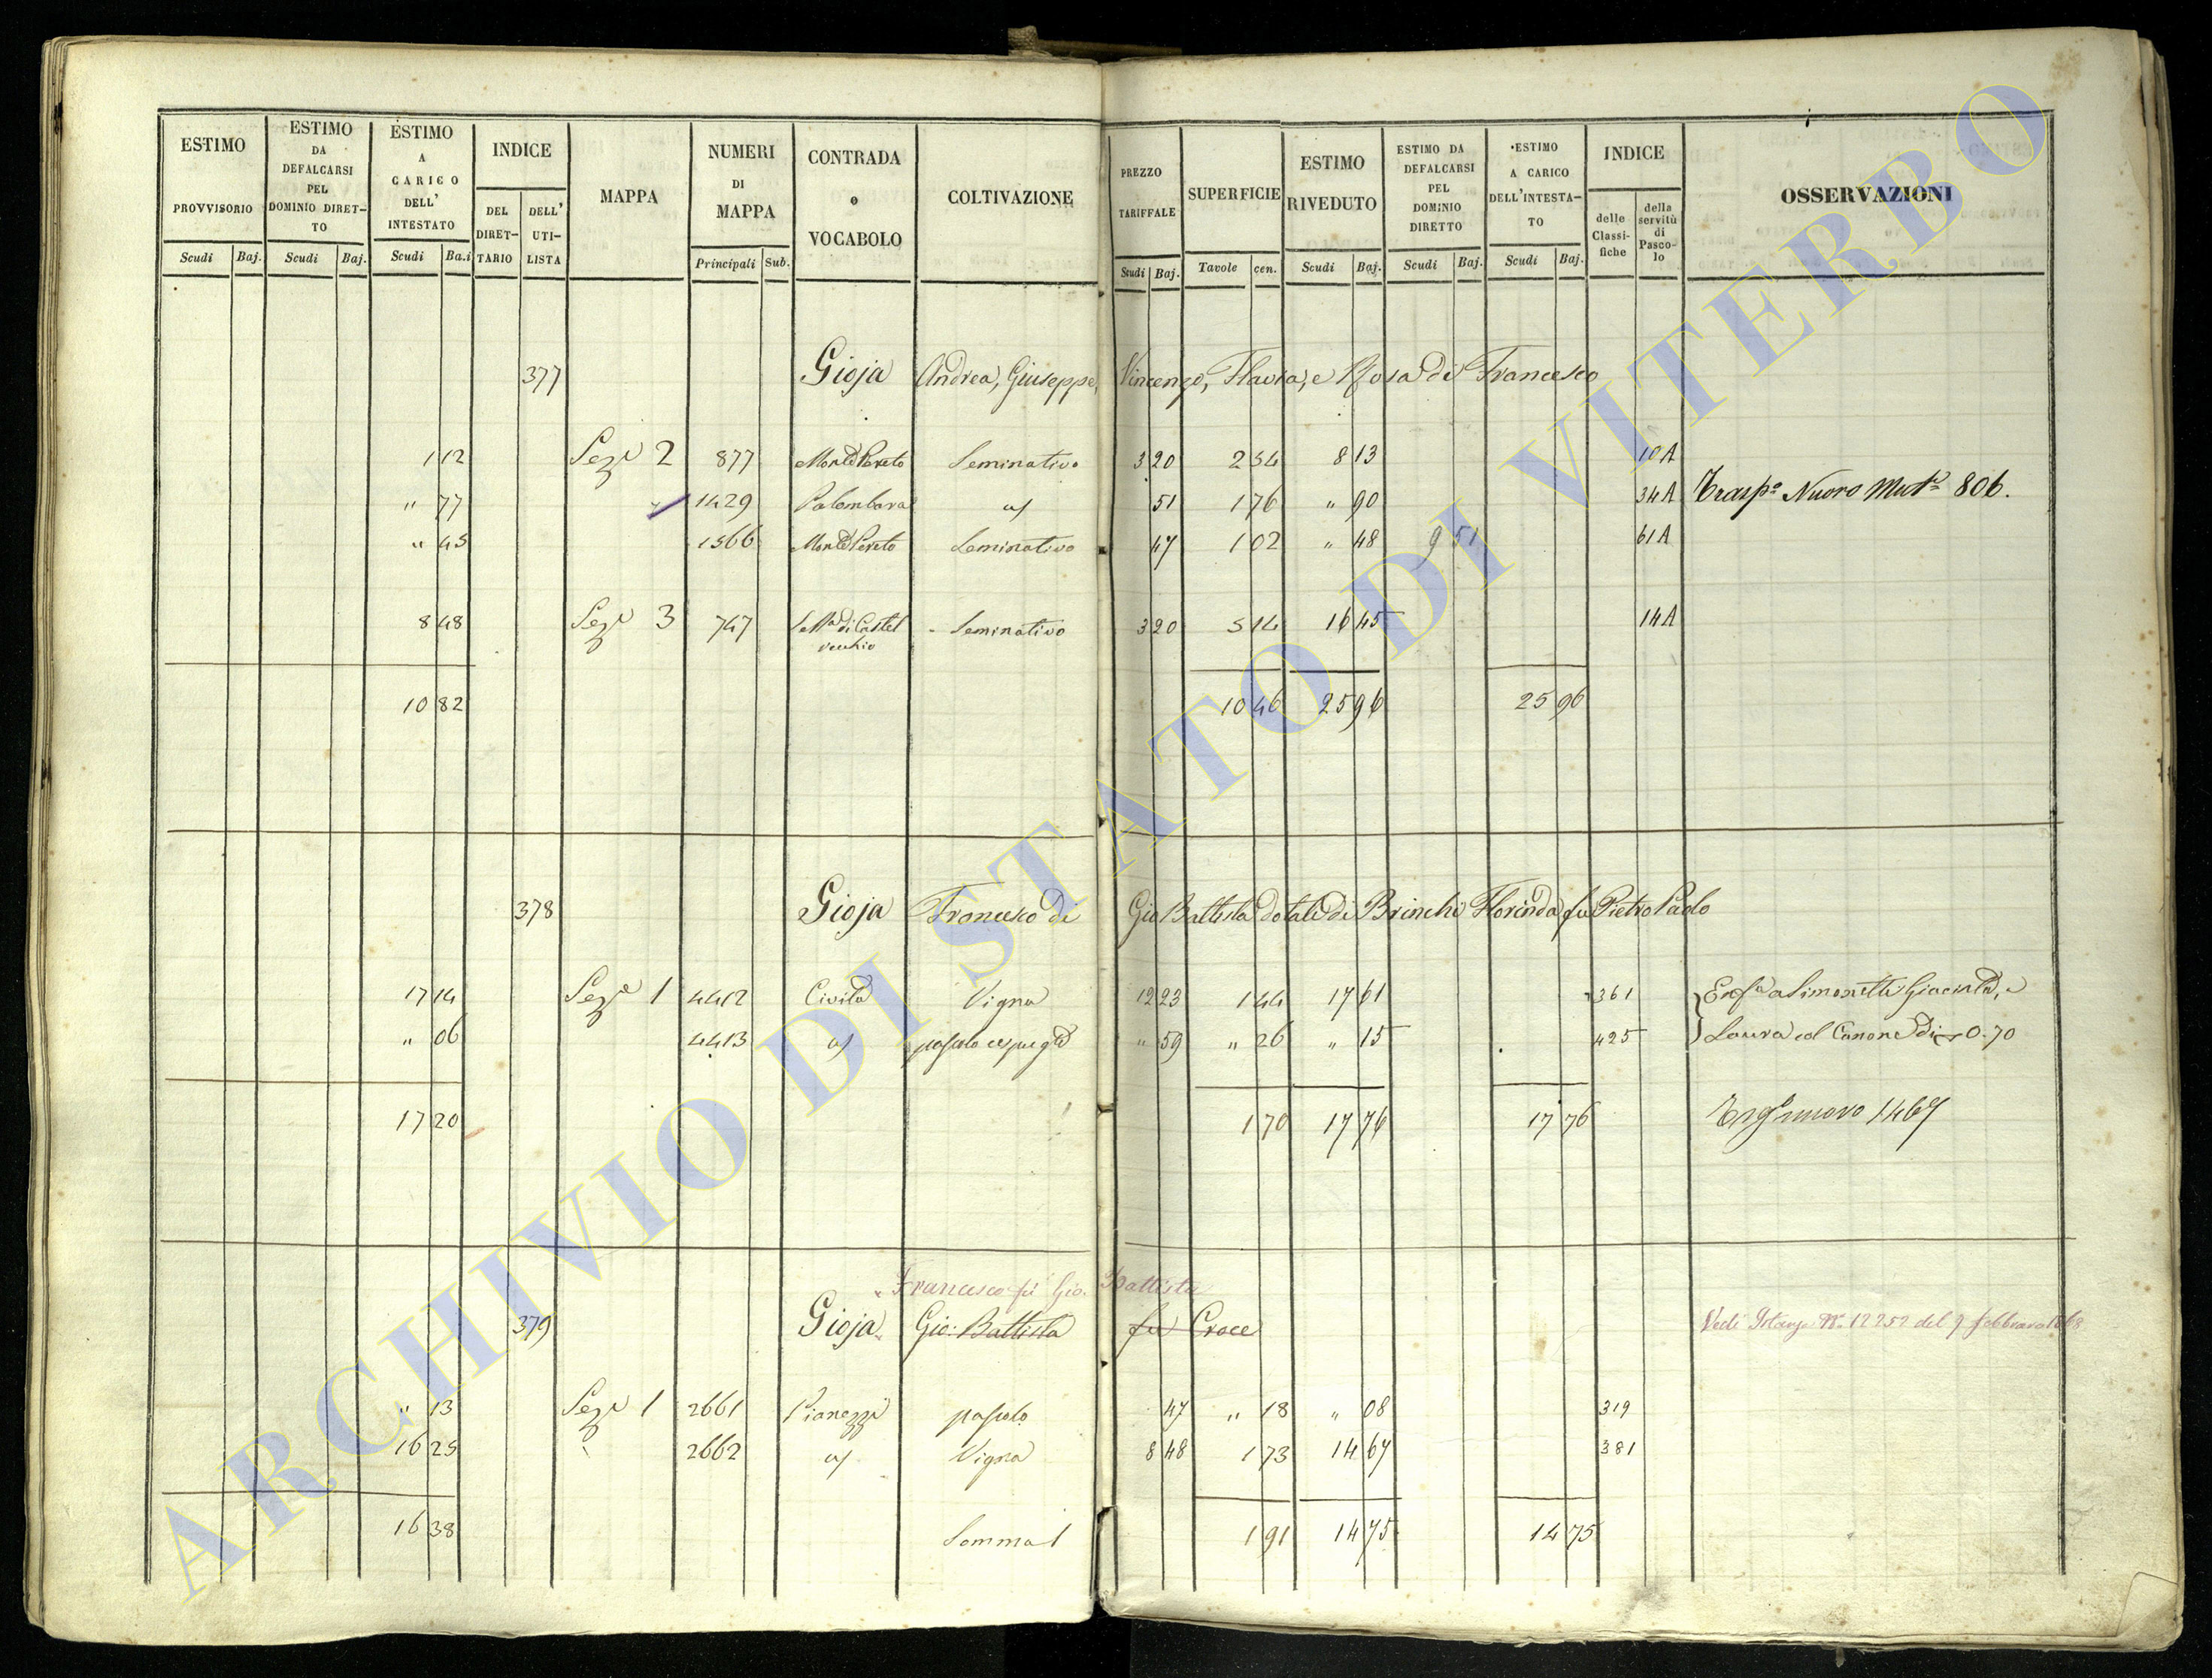 ESTIMO PROVVISORIO
ESTIMO DA DEFALCARSI PEL DOMINIO DIRET-TO
ESTIMO A CARICO DELL' INTESTATO
INDICE
DEL DIRET-TARIO
DELL' UTI-LISTA
MAPPA
NUMERI DI MAPPA
CONTRADA o VOCABOLO
COLTIVAZIONE
PREZZO TARIFFALE
SUPERFICIE
ESTIMO RIVEDUTO
ESTIMO DA DEFALCARSI PEL DOMINIO DIRETTO
ESTIMO A CARICO DELL'INTESTA-TO
INDICE
delle Classi-fiche
della servitù di Pasco-lo
OSSERVAZIONI
Scudi Baj. Scudi Baj. Scudi Ba.i Principali Sub. Scudi Baj. Tavole cen. Scudi Baj. Scudi Baj. Scudi Baj.
377 Gioja Andrea, Giuseppe, Vincenzo, Flavia, e Rosa di Francesco
1 12 Sez.e 2 877 Seminativo 3 20 2 54 8 13 10A
" 77 1429 Palombara 51 1 76 " 90 34A Trasp.o Nuovo Mut.e 806.
" 45 1566 Seminativo 47 1 02 " 48 9 51 61A
8 48 Sez.e 3 747 di Castel vecchio Seminativo 3 20 5 14 16 45 14A
10 82 10 46 25 96 25 96
378 Gioja Francesco di Gio Battista dotale di Brinchi Florinda fu Pietro Paolo
17 14 Sez.e 1 4412 Civita Vigna 12 23 1 44 17 61 361 a Simonetti Giacinta, e
" 06 4413 pascolo " 59 " 26 " 15 425 Laura col Canone di 0.70
17 20 1 70 17 76 17 76 nuovo 1467
Francesco fù Gio. Battista
379 Gioja Gio: Battista fu Croce Vedi Istanza N. 12252 del 9 febbraro 1868
" 13 Sez.e 1 2661 Pianezzi pascolo 47 " 18 " 08 319
16 25 2662 Vigna 8 48 1 73 14 67 381
16 38 Somma 1 91 14 75 14 75
ARCHIVIO DI STATO DI VITERBO